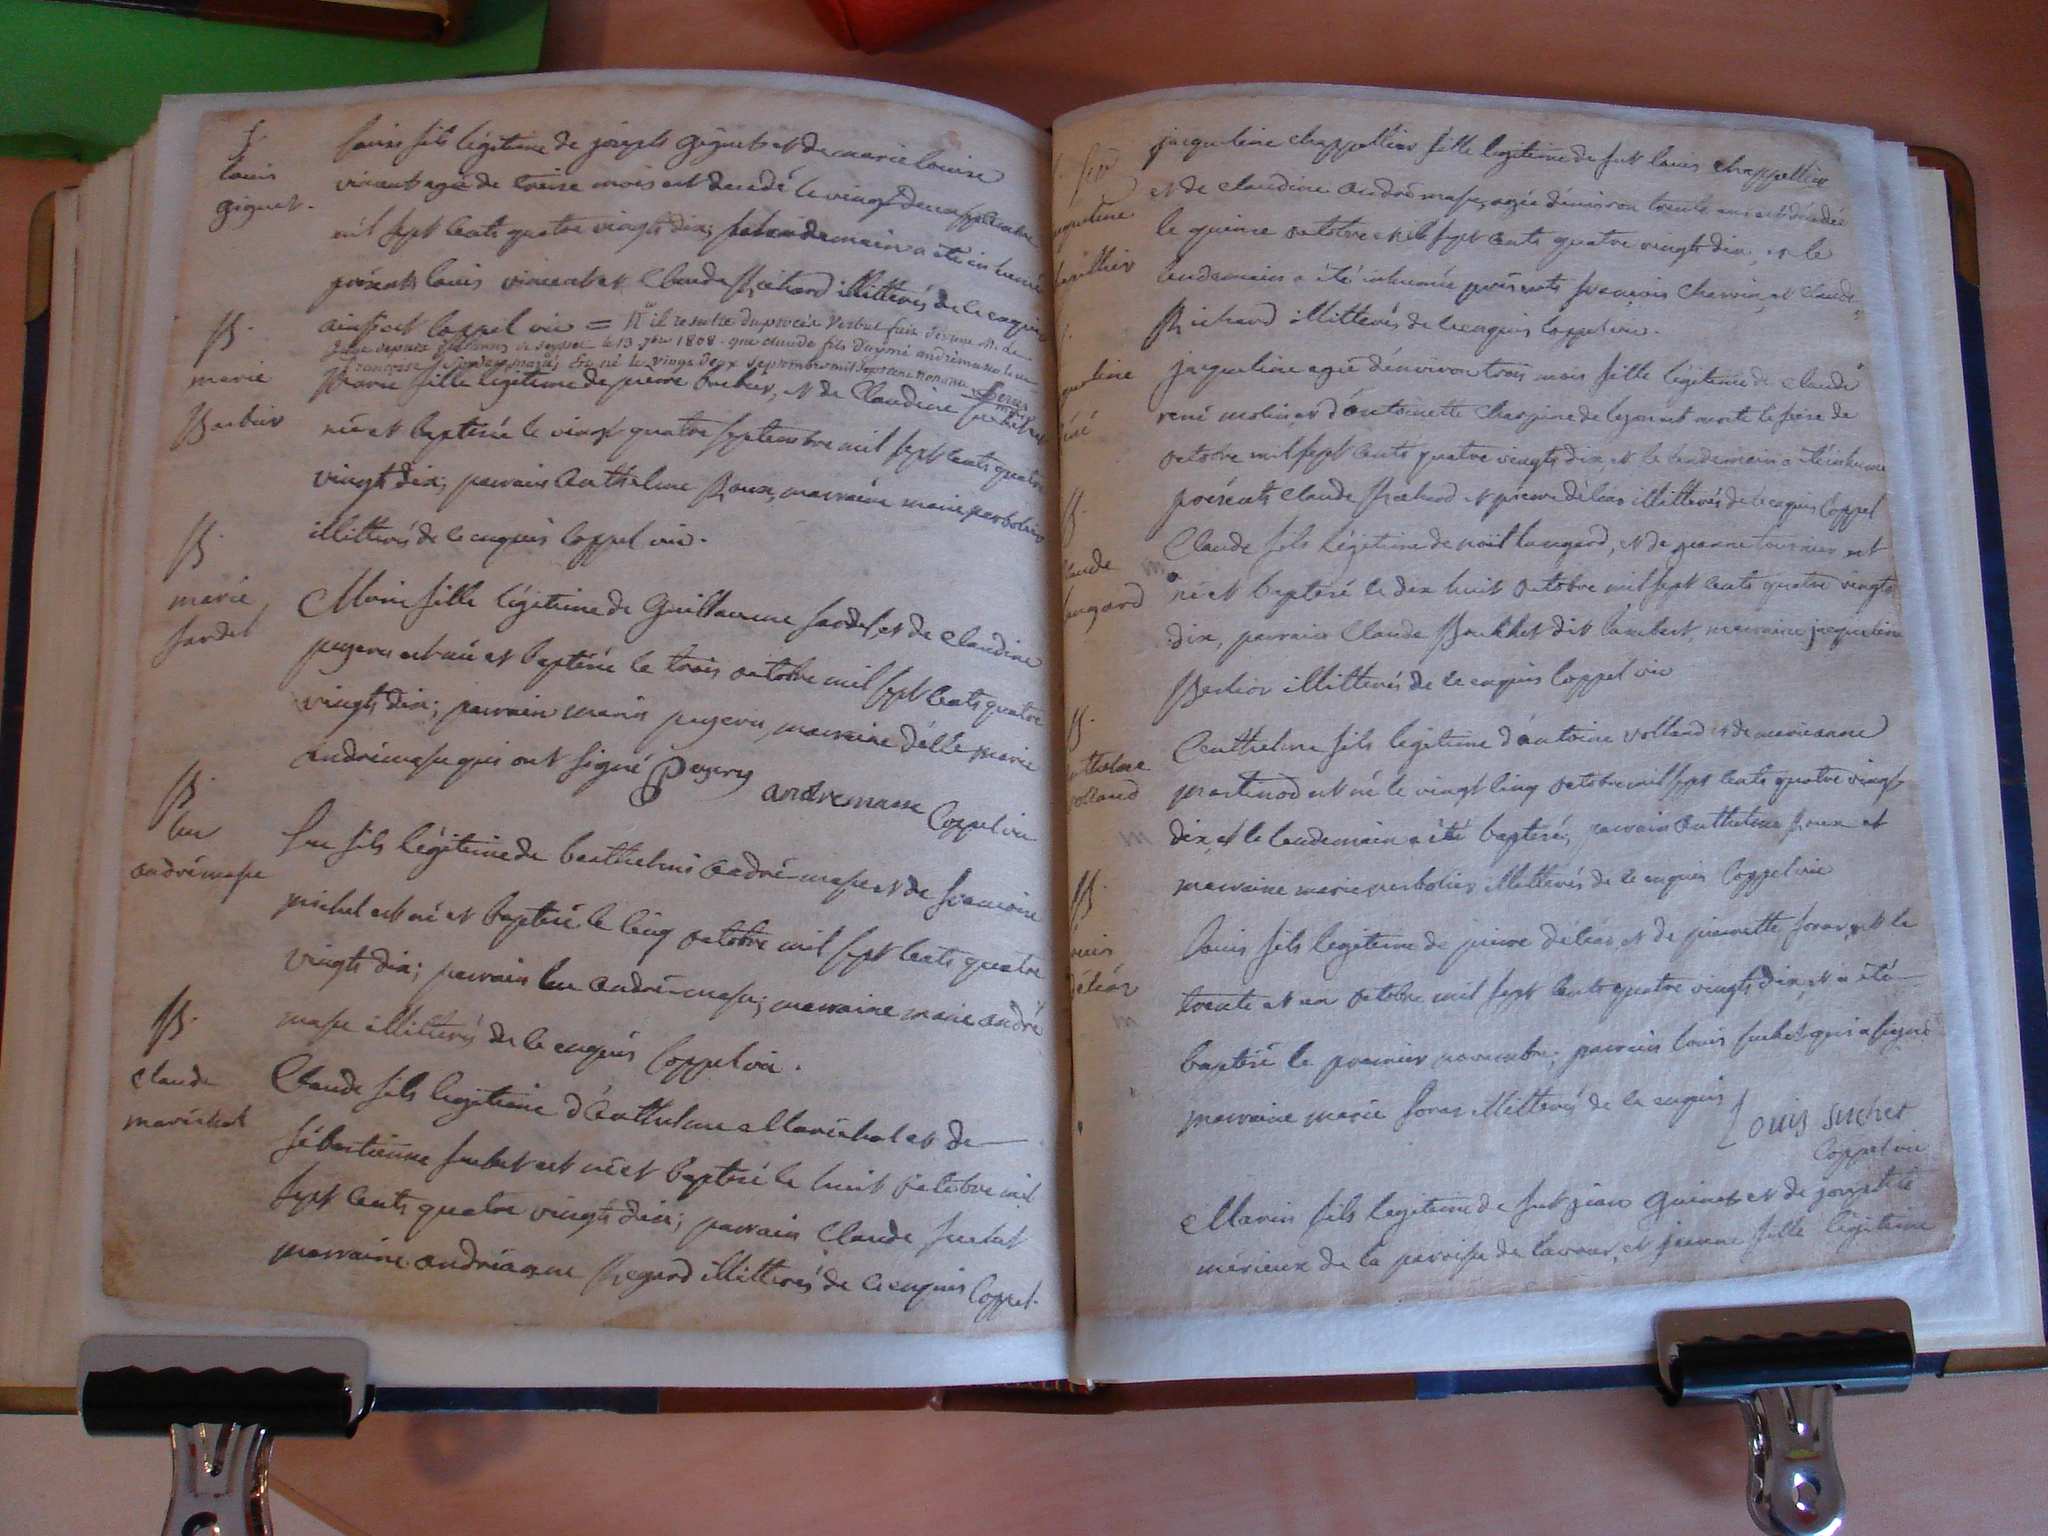 S.
louis
giguet.
louis fils légitime de joseph giguet et de marie louise
vincent agé de treise mois est decedé le vingt deux septembre
mil sept cents quatre vingts dix; le lendemain a été inhumé
présents louis vincent et Claude Richard illitterés de ce enquis
ainsi est Coppel vic = il resulte du procès verbal fait devant M. le
juge de paix de seyssel le 13 1808. que claude fils d'aymé andrémasse et de
françoise est né le vingt deux septembre mil sept cent nonante
B.
marie
Barbier
Marie fille légitime de pierre barbier, et de Claudine suchet est
née et baptisée le vingt quatre septembre mil sept cents quatre
vingts dix; parrain anthelme Roux, marraine marie perbolier
illitterés de ce enquis Coppel vic.
B.
marie
fardel
Marie fille légitime de Guillaume fardel et de Claudine
pugeru est née et baptisée le trois octobre mil sept cents quatre
vingts dix; parrain marin pugeru, marraine d'elle marie
andrémasse qui ont signé andremasse Coppel vic
B.
luc
andrémasse
luc fils légitime de barthelemi andré-masse et de françoise
michel est né et baptisé le cinq octobre mil sept cents quatre
vingts dix; parrain luc andré-masse; marraine marie andré
masse illitterés de ce enquis Coppel vic.
B.
claude
maréchal
Claude fils legitime d'anthelme Maréchal et de
sébastienne suchet est né et baptisé le huit octobre mil
sept cents quatre vingts dix; parrain Claude suchet
marraine andrianne Regard illitterés de ce enquis Coppel.
jacqueline chappellier fille legitime de fut louis chappellier
et de claudine andrémasse, agée d'environ trente ans est décédée
le quinze octobre mil sept cents quatre vingts dix, et le
lendemain a été inhumée présents françois charvin, et claude
Richard illitterés de ce enquis Coppel vic.
jacqueline agée d'environ trois mois fille légitime de claude
rené molin et d'antoinette de lyon est morte le seize de
octobre mil sept cents quatre vingts dix, et le lendemain a été inhumée
présents Claude Richard et pierre déléaz illitterés de ce enquis Coppel
B.
claude
langard
Claude fils légitime de noël langard, et de jeanne tournier est
né et baptisé le dix huit octobre mil sept cents quatre vingts
dix, parrain Claude dit lambert, marraine jacqueline
Berlioz illitterés de ce enquis Coppel vic
B.
anthelme
volland
Anthelme fils legitime d'antoine volland et de marianne
martinod est né le vingt cinq octobre mil sept cents quatre vingt
dix, et le lendemain a été baptisé; parrain anthelme Roux et
marraine marie perbolier illitterés de ce enquis Coppel vic
B.
louis
déléaz
louis fils legitime de pierre déléaz et de pierrette foraz, est né
trente et un octobre mil sept cents quatre vingts dix, et a été
baptisé le premier novembre; parrain louis suchet qui a signé
marraine marie foraz illitterés de ce enquis Louis suchet
Coppel vic
Marin fils legitime de fut jean Guinet et de josephte
mérieux de la paroisse de lavour, et jeanne fille légitime